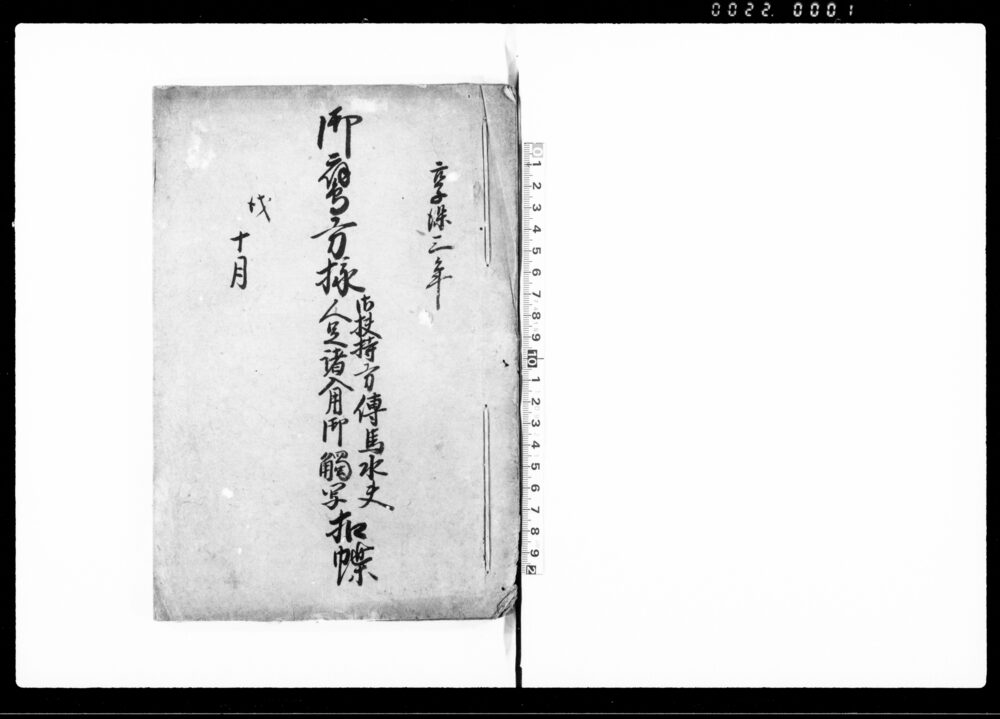 0022. 0001
享保三年
御鷹方様
御扶持方傳馬水夫
人足諸入用御觸写
扣帳
戌
十月
0 1 2 3 4 5 6 7 8 9 10 1 2 3 4 5 6 7 8 9 2